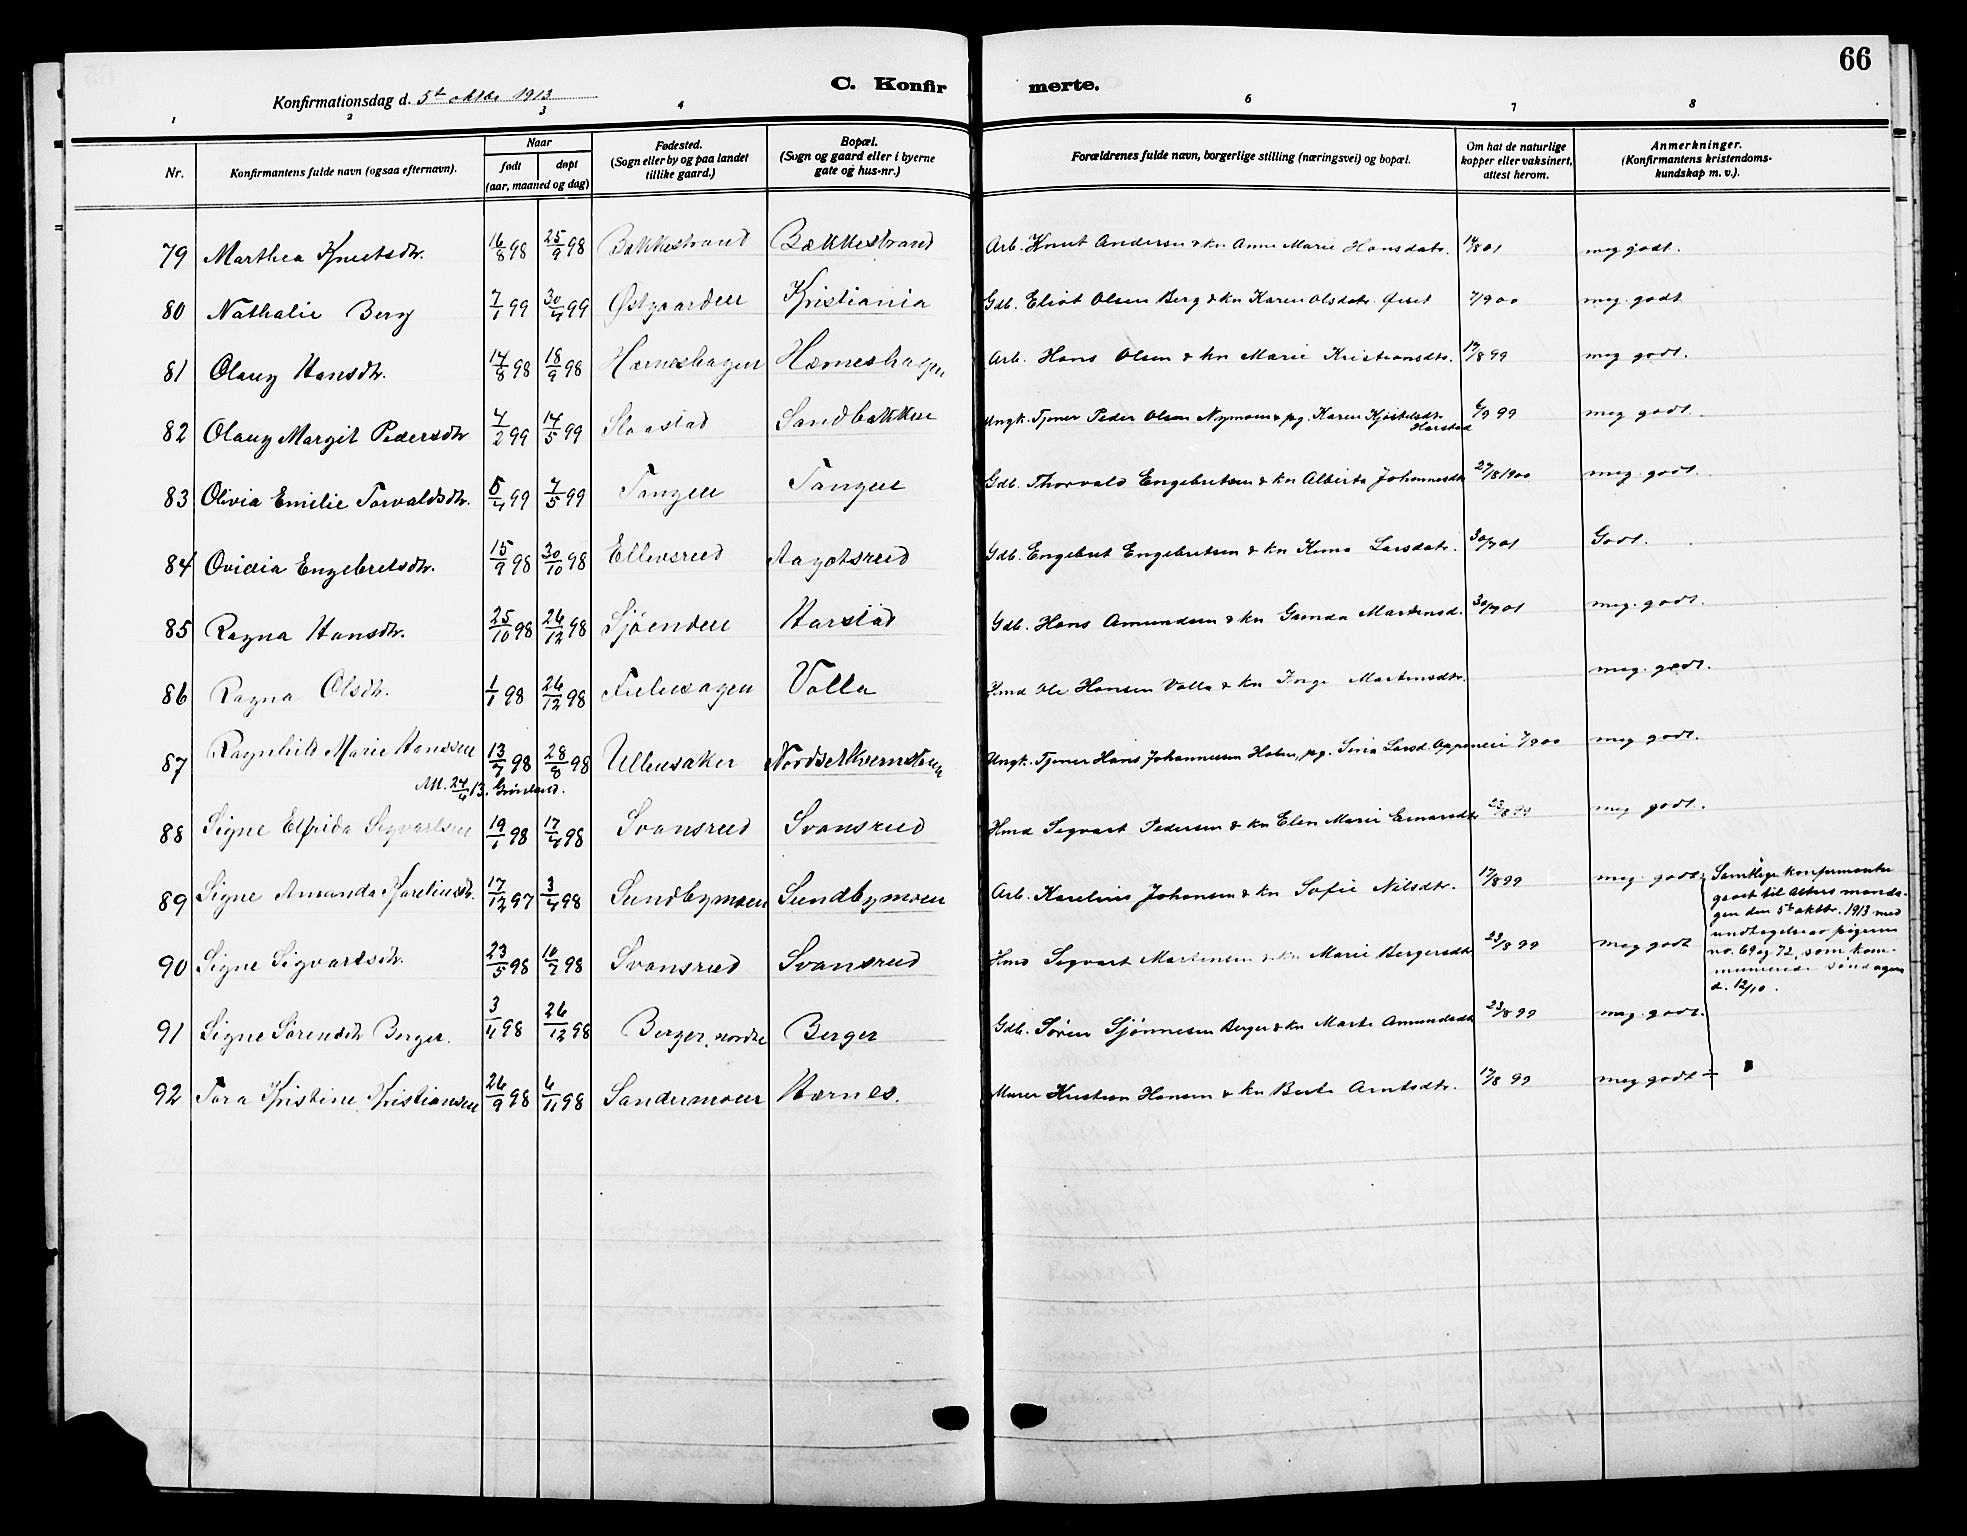 66
C. Konfirmerte.
Konfirmationsdag d. 5te oktbr 1913
1 2 3 4 5 6 7 8
Nr.
Konfirmantens fulde navn (ogsaa efternavn).
Naar
født
døpt
(aar, maaned og dag)
Fødested.
(Sogn eller by og paa landet
tillike gaard.)
Bopæl.
(Sogn og gaard eller i byerne
gate og hus-nr.)
Forældrenes fulde navn, borgerlige stilling (næringsvei) og bopæl.
Om hat de naturlige
kopper eller vaksinert,
attest herom.
Anmerkninger.
(Konfirmantens kristendoms-
kundskap m. v.).
79 Marthea Knutsdtr. 16/8 98 25/9 98 Bakkestrand Bækkestrand Arb. Knut Andersen & kn Anne Marie Hansdatr. 14/8 01 meg godt.
80 Nathalie Berg 7/1 99 30/4 99 Østgaarden Kristiania Gdb. Eliot Olsen Berg & kn Karen Olsdatr. 7/9 00 meg. godt
81 Olaug Hansdtr. 14/8 98 18/9 98 Hærneshagen Hærneshagen Arb. Hans Olsen & kn Marie Kristiansdtr. 17/8 99 meg godt.
82 Olaug Margit Pedersdtr 4/2 99 14/5 99 Slaastad Sandbakken Ungk. Tjener Peder Olsen Nymoen & pg. Karen Kjøstelsdtr Harstad 6/9 99 meg godt.
83 Olivia Emilie Torvaldsdtr. 5/4 99 7/5 99 Tangen Tangen Gdb. Thorvald Engebretsen & kn Alberta Johannesdtr 27/8 1900 meg. godt.
84 Ovidia Engebretsdtr. 15/9 98 30/10 98 Ellevsrud Aagotsrud Gdb. Engebret Engebretsen & kn Larsdatr. 30/7 01 Godt.
85 Ragna Hansdtr. 25/10 98 26/12 98 Sjøenden Harstad Gdb. Hans Amundsen & kn Gunda Martinsd. 30/7 01 meg. godt.
86 Ragna Olsdtr. 1/1 98 26/12 98 Volla Hmd Ole Hansen Volla & kn Inge Martinsdtr. meg. godt.
87 Ragnhild Marie Hanssen 13/7 98 28/8 98 Ullensaker Ungk. Tjener Hans Johannessen Holm, pg. Larsd. 7/9 00 meg godt.
Att. 24/6 13. Grønland.
88 Signe Elfrida Sigvartsen 19/1 98 17/4 98 Svansrud Svansrud Hmd Segvart Pedersen & kn Elen Marie Einarsdtr 23/8 99 meg godt.
89 Signe Amanda Kareliusdtr. 17/12 97 3/4 98 Sundbymoen Sundbymoen Arb. Karelius Johansen & kn Sofie Nilsdtr. 17/8 99 meg. godt.
90 Signe Sigvartsdtr. 23/5 98 10/7 98 Svansrud Svansrud Hmd Segvart Martinsen & kn Marie Bergersdtr 23/8 99 meg godt
Samtlige konfirmanter
gaat til Alters manda-
gen den 5te oktbr. 1913 med
undtagelse av pigerne
no. 69 og 72, som kom-
municerede søndagen
d. 12/10.
91 Signe Sørensdtr Berger. 3/4 98 26/12 98 Berger, nordre Berger Gdb. Søren Sjønnesen Berger & kn Marte Amundsdtr 23/8 99 meg. godt.
92 Tora Kristine Kristiansen 26/9 98 6/11 98 Sandermoen Hærnes. Murer Kristian Hansen & kn Berte Arntsdtr. 17/8 99 meg godt